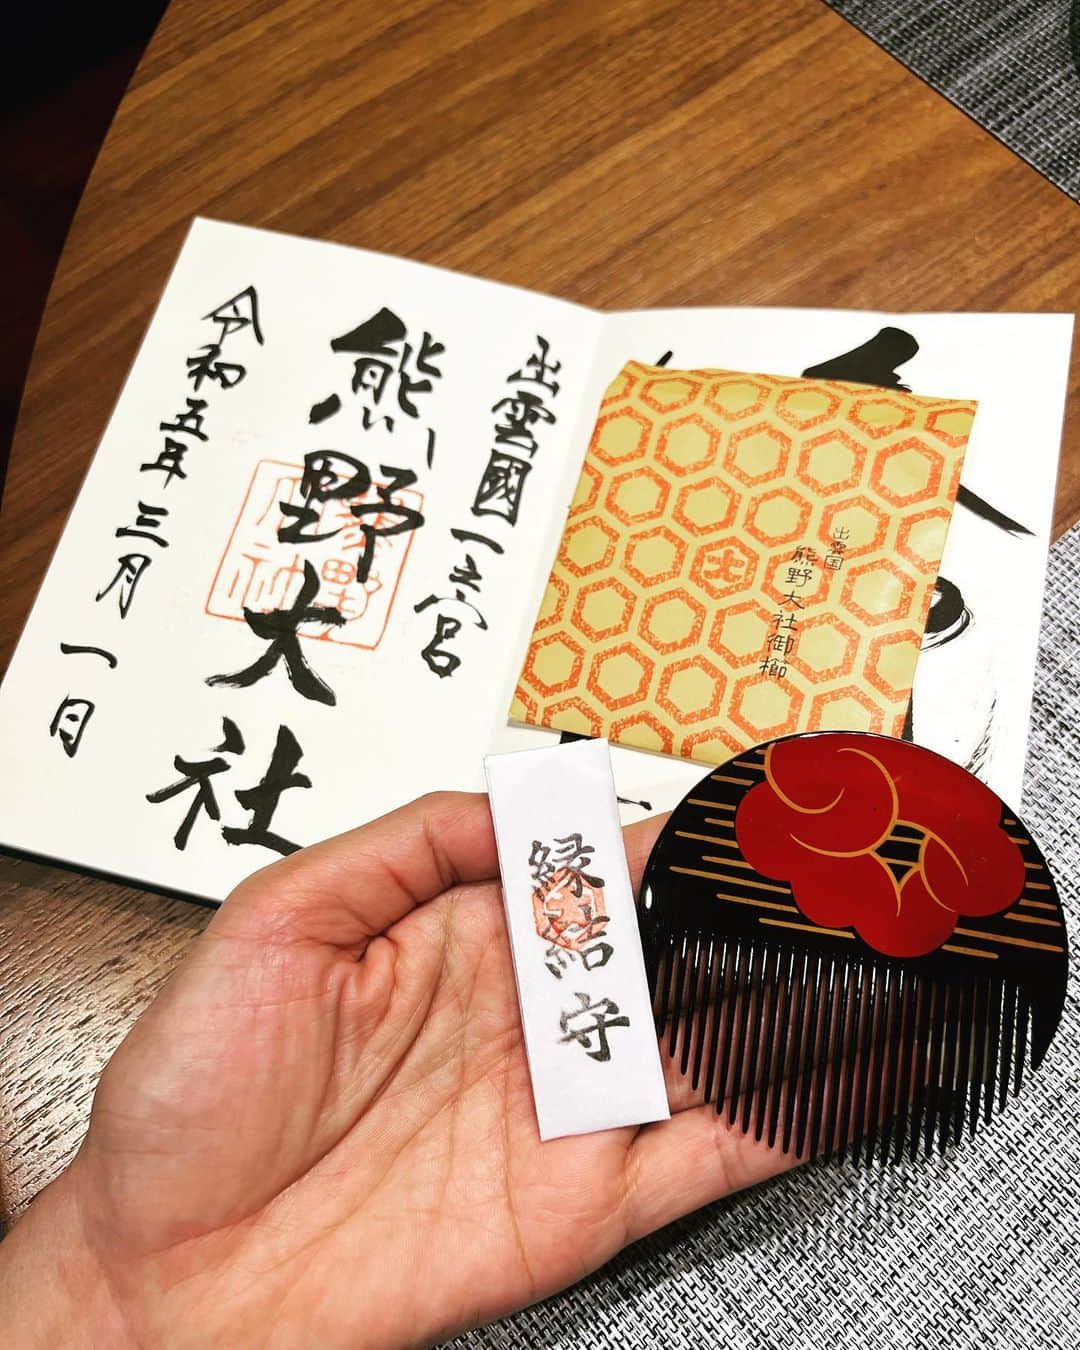 出雲國一之宮
熊野大社
令和五年三月一日
熊野大社
出雲国
熊野大社御櫛
縁結守